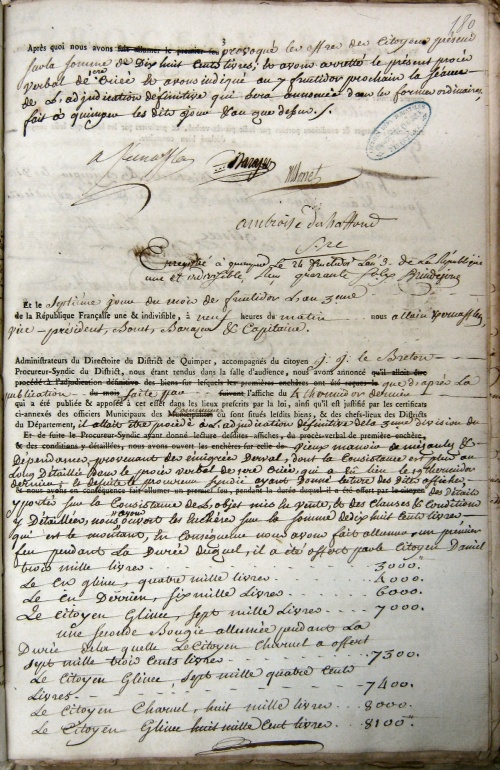 180
Après quoi nous avons fait allumer le premier feu provoqué les offres des Citoyens présens
sur la somme de Dix huit Cents livres, & avons arretté le présent procès
verbal de 1ere Criée & avons indiqué au 7 fructidor prochain la Séance
de L'adjudication définitive qui sera annoncée dans la forme ordinaire,
fait à quimper les dits jour & an que dessus ./.
Enregistré à quimper le 24 fructidor L'an 3e de La République
une et indivisible, Reçu quarante Sols
Et le Septième jour du mois de fructidor L'an 3eme
de la République Française une & indivisible, à neuf heures du matin nous allain
vice-président, Bonet, Barazer & Capitaine.
Administrateurs du Directoire du District de Quimper, accompagnés du citoyen j. j. le Breton
Procureur-Syndic du District, nous étant rendus dans la salle d'audience, nous avons annoncé qu'il alloit être
procédé à l'adjudication définitive des biens sur lesquels les premières enchères ont été reçues le que d'après La
publication du mois faite par suivant l'affiche du thermidor dernier
qui a été publiée & apposée à cet effet dans les lieux prescrits par la loi, ainsi qu'il est justifié par les certificats
ci-annexés des officiers Municipaux des Municipalités où sont situés lesdits biens, & des chefs-lieux des Districts
du Département, il alloit être procédé à L'adjudication définitive de la 3eme division de
Et de suite le Procureur-Syndic ayant donné lecture desdites affiches, du procès-verbal de première enchère,
& des conditions y détaillées, nous avons ouvert les enchères sur celle de
Dépendances provenant des émigrés Derval, dont la Consistance est plus au
Long détaillée dans le procès verbal de 1ere Criée, qui a eu lieu le 19 thermidor
dernier; & de suite le procureur Syndic ayant Donné lecture des dites affiches,
& nous avons en conséquence fait allumer un premier feu, pendant la durée duquel il a été offert par le citoyen des Détails
y portés sur la Consistance de L'objet mis en vente, & des Clauses & Conditions
y Détaillées, nous avons ouvert les Enchères sur la somme de dix huit Cents livres
qui est le montant, En Conséquence nous avons fait allumer un premier
feu pendant La Durée duquel, il a été offert par le Citoyen Daniel
trois mille livres 3000.
Le Cn Glinec, quatre mille livres 4000.
Le Cn Derrien, six mille Livres 6000.
Le Citoyen Glinec, Sept mille Livres 7000.
une seconde Bougie allumée pendant La
Durée de la quelle Le Citoyen Charuel a offert
sept mille trois Cents livres 7300.
Le Citoyen Glinec, Sept mille quatre Cents
Livres 7400.
Le Citoyen Charuel, huit mille livres 8000.
Le Citoyen Glinec huit mille Cent livres 8100.